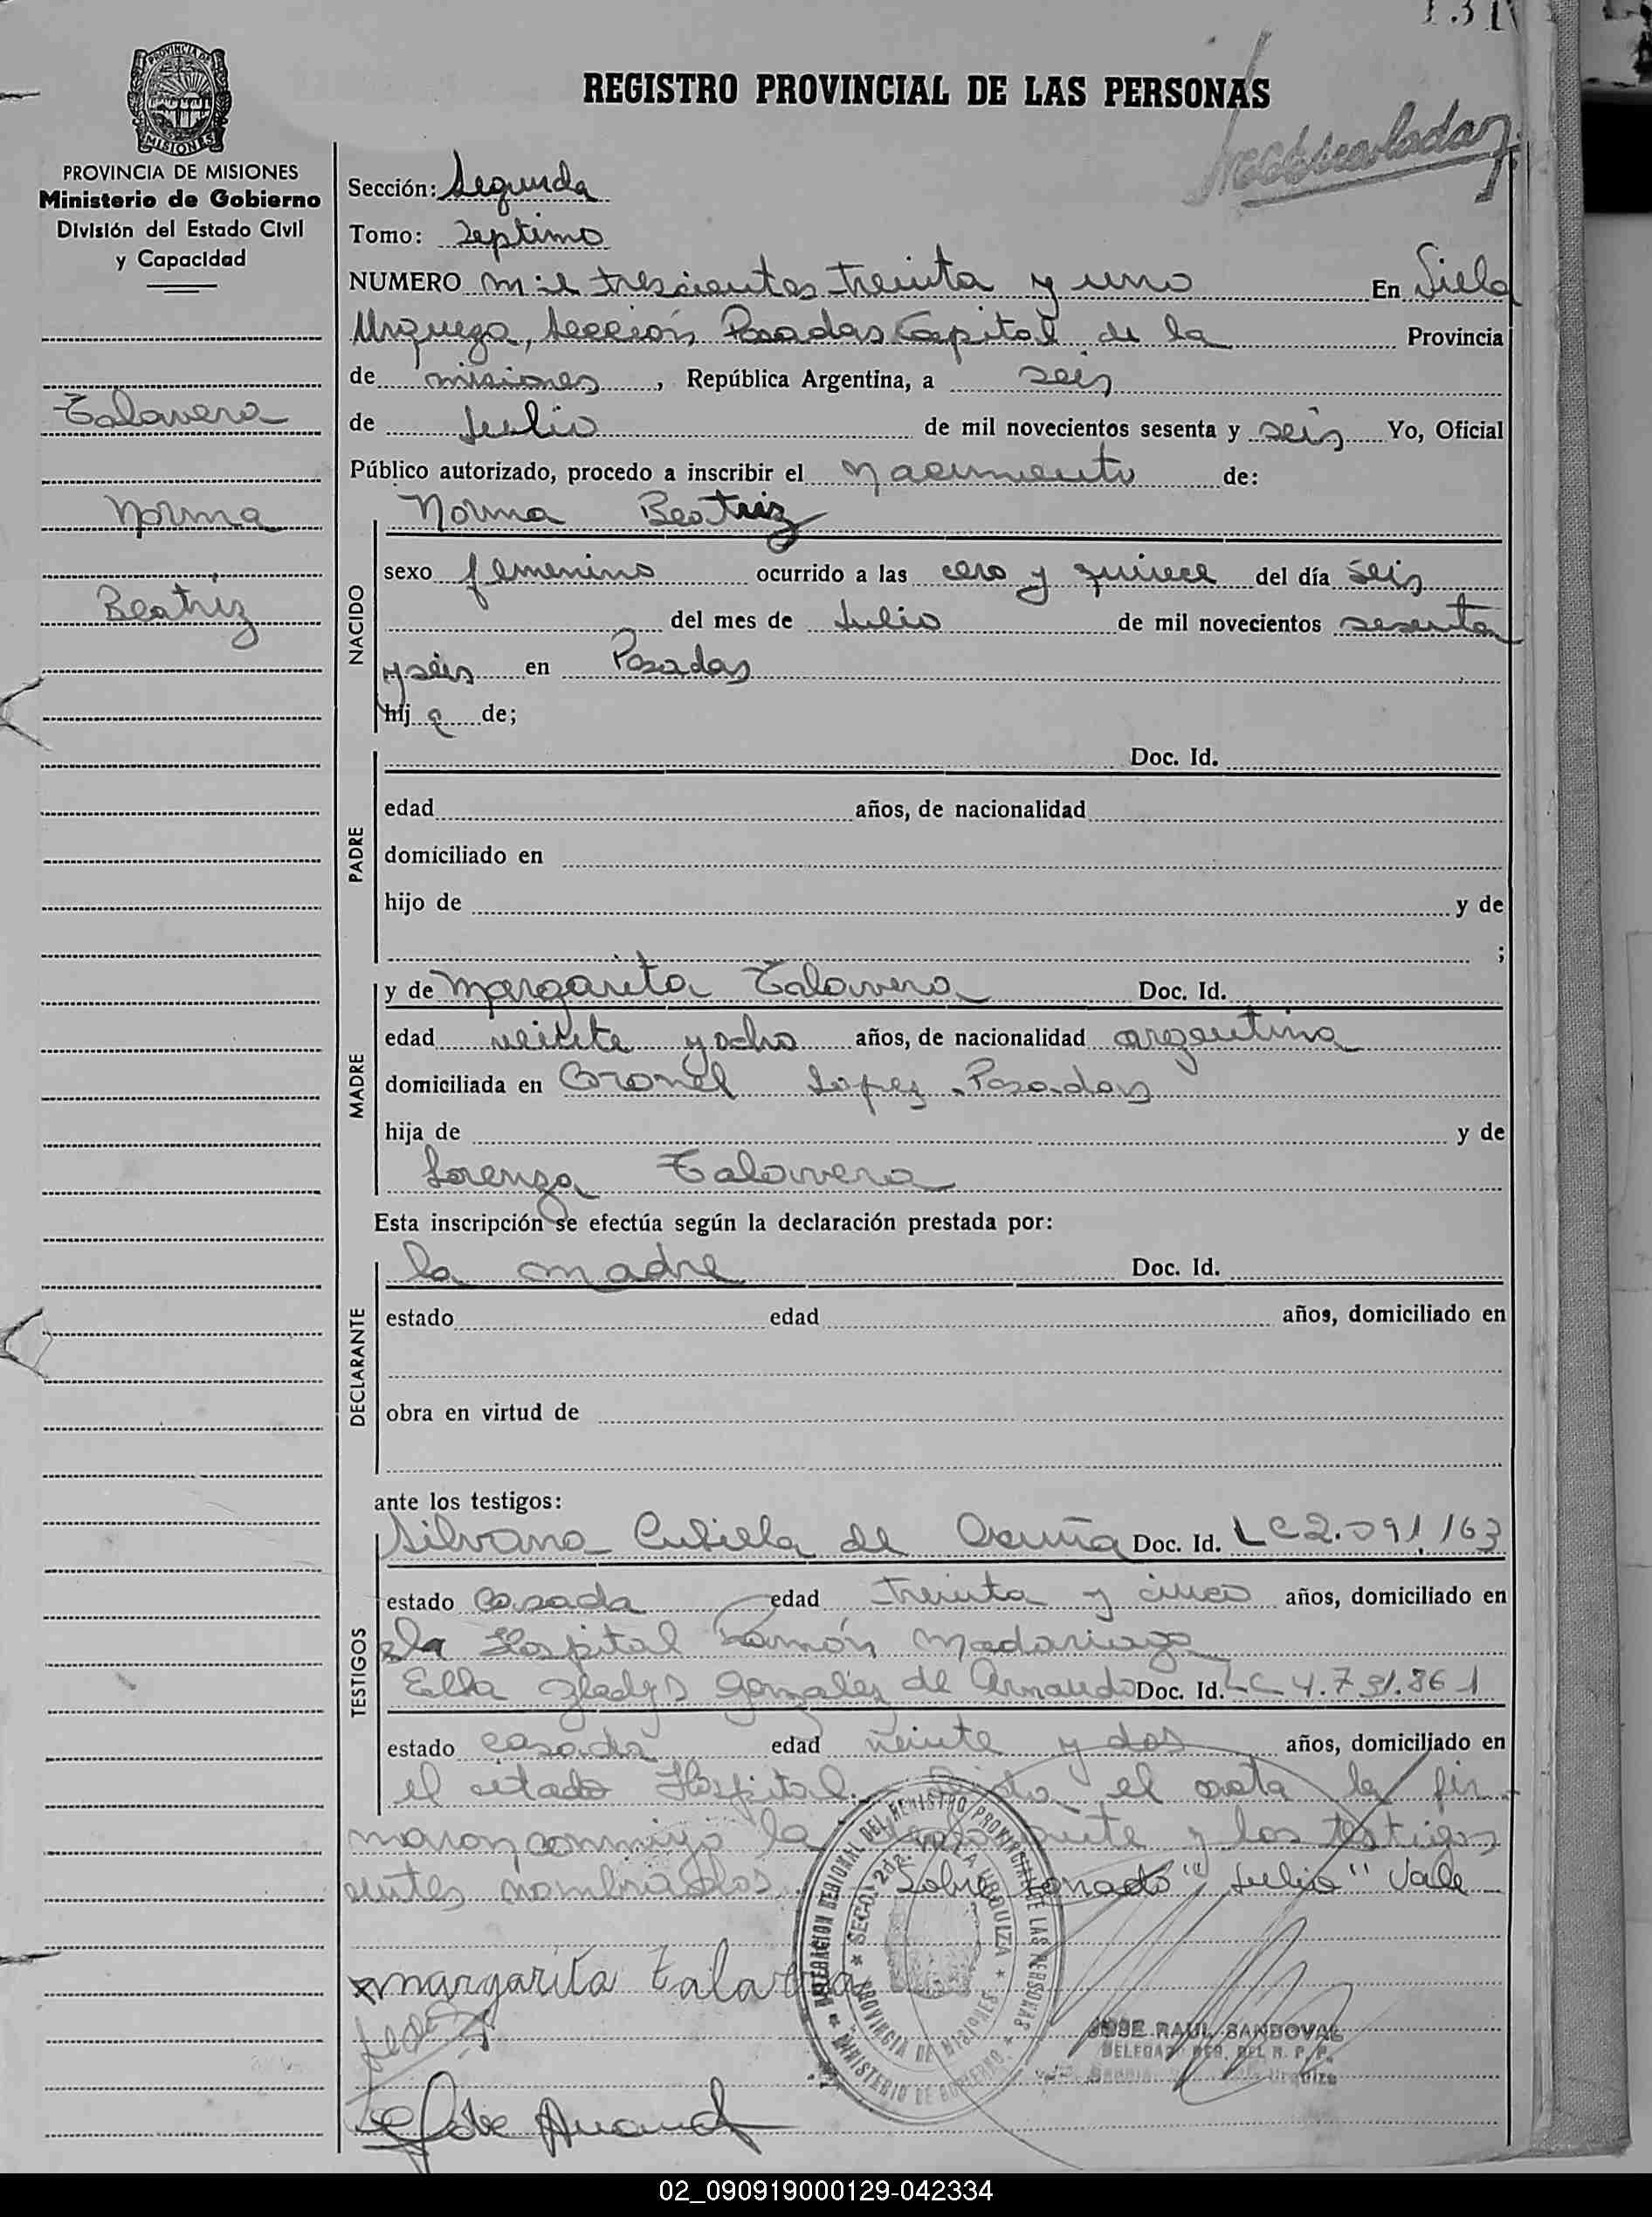 REGISTRO PROVINCIAL DE LAS PERSONAS
PROVINCIA DE MISIONES
Ministerio de Gobierno
División del Estado Civil
y Capacidad
Talavera
Norma
Beatriz
Sección: Segunda
Tomo: Septimo
NUMERO mil trescientos treinta y uno En Villa
Urquiza, Sección Posadas Capital de la Provincia
de misiones, República Argentina, a seis
de Julio de mil novecientos sesenta y seis Yo, Oficial
Público autorizado, procedo a inscribir el nacimiento de:
NACIDO
Norma Beatriz
sexo femenino ocurrido a las cero y quince del día seis
del mes de Julio de mil novecientos sesenta
y seis en Posadas
hij a de;
PADRE
Doc. Id.
edad años, de nacionalidad
domiciliado en
hijo de y de
;
MADRE
y de Margarita Talavera Doc. Id.
edad veinte y ocho años, de nacionalidad argentina
domiciliada en Coronel Lopez - Posadas
hija de y de
Lorenza Talavera
Esta inscripción se efectúa según la declaración prestada por:
DECLARANTE
la madre Doc. Id.
estado edad años, domiciliado en
obra en virtud de
ante los testigos:
TESTIGOS
Silvana Cubilla de Acuña Doc. Id. LC 2.091.163
estado casada edad treinta y cinco años, domiciliado en
Hospital Ramón Madariaga
Elba Gladys Gonzalez de Armando Doc. Id. LC 4.731.861
estado casada edad veinte y dos años, domiciliado en
el citado Hospital. el acta la fir
maron conmigo la y los testigos
antes nombrados. Sobre "Julio" Vale
Margarita Talavera
DELEGACION REGIONAL DEL REGISTRO PROVINCIAL DE LAS PERSONAS
MINISTERIO DE GOBIERNO
SECC. 2da. VILLA URQUIZA
PROVINCIA DE MISIONES
JOSE RAUL SANDOVAL
02_090919000129-042334